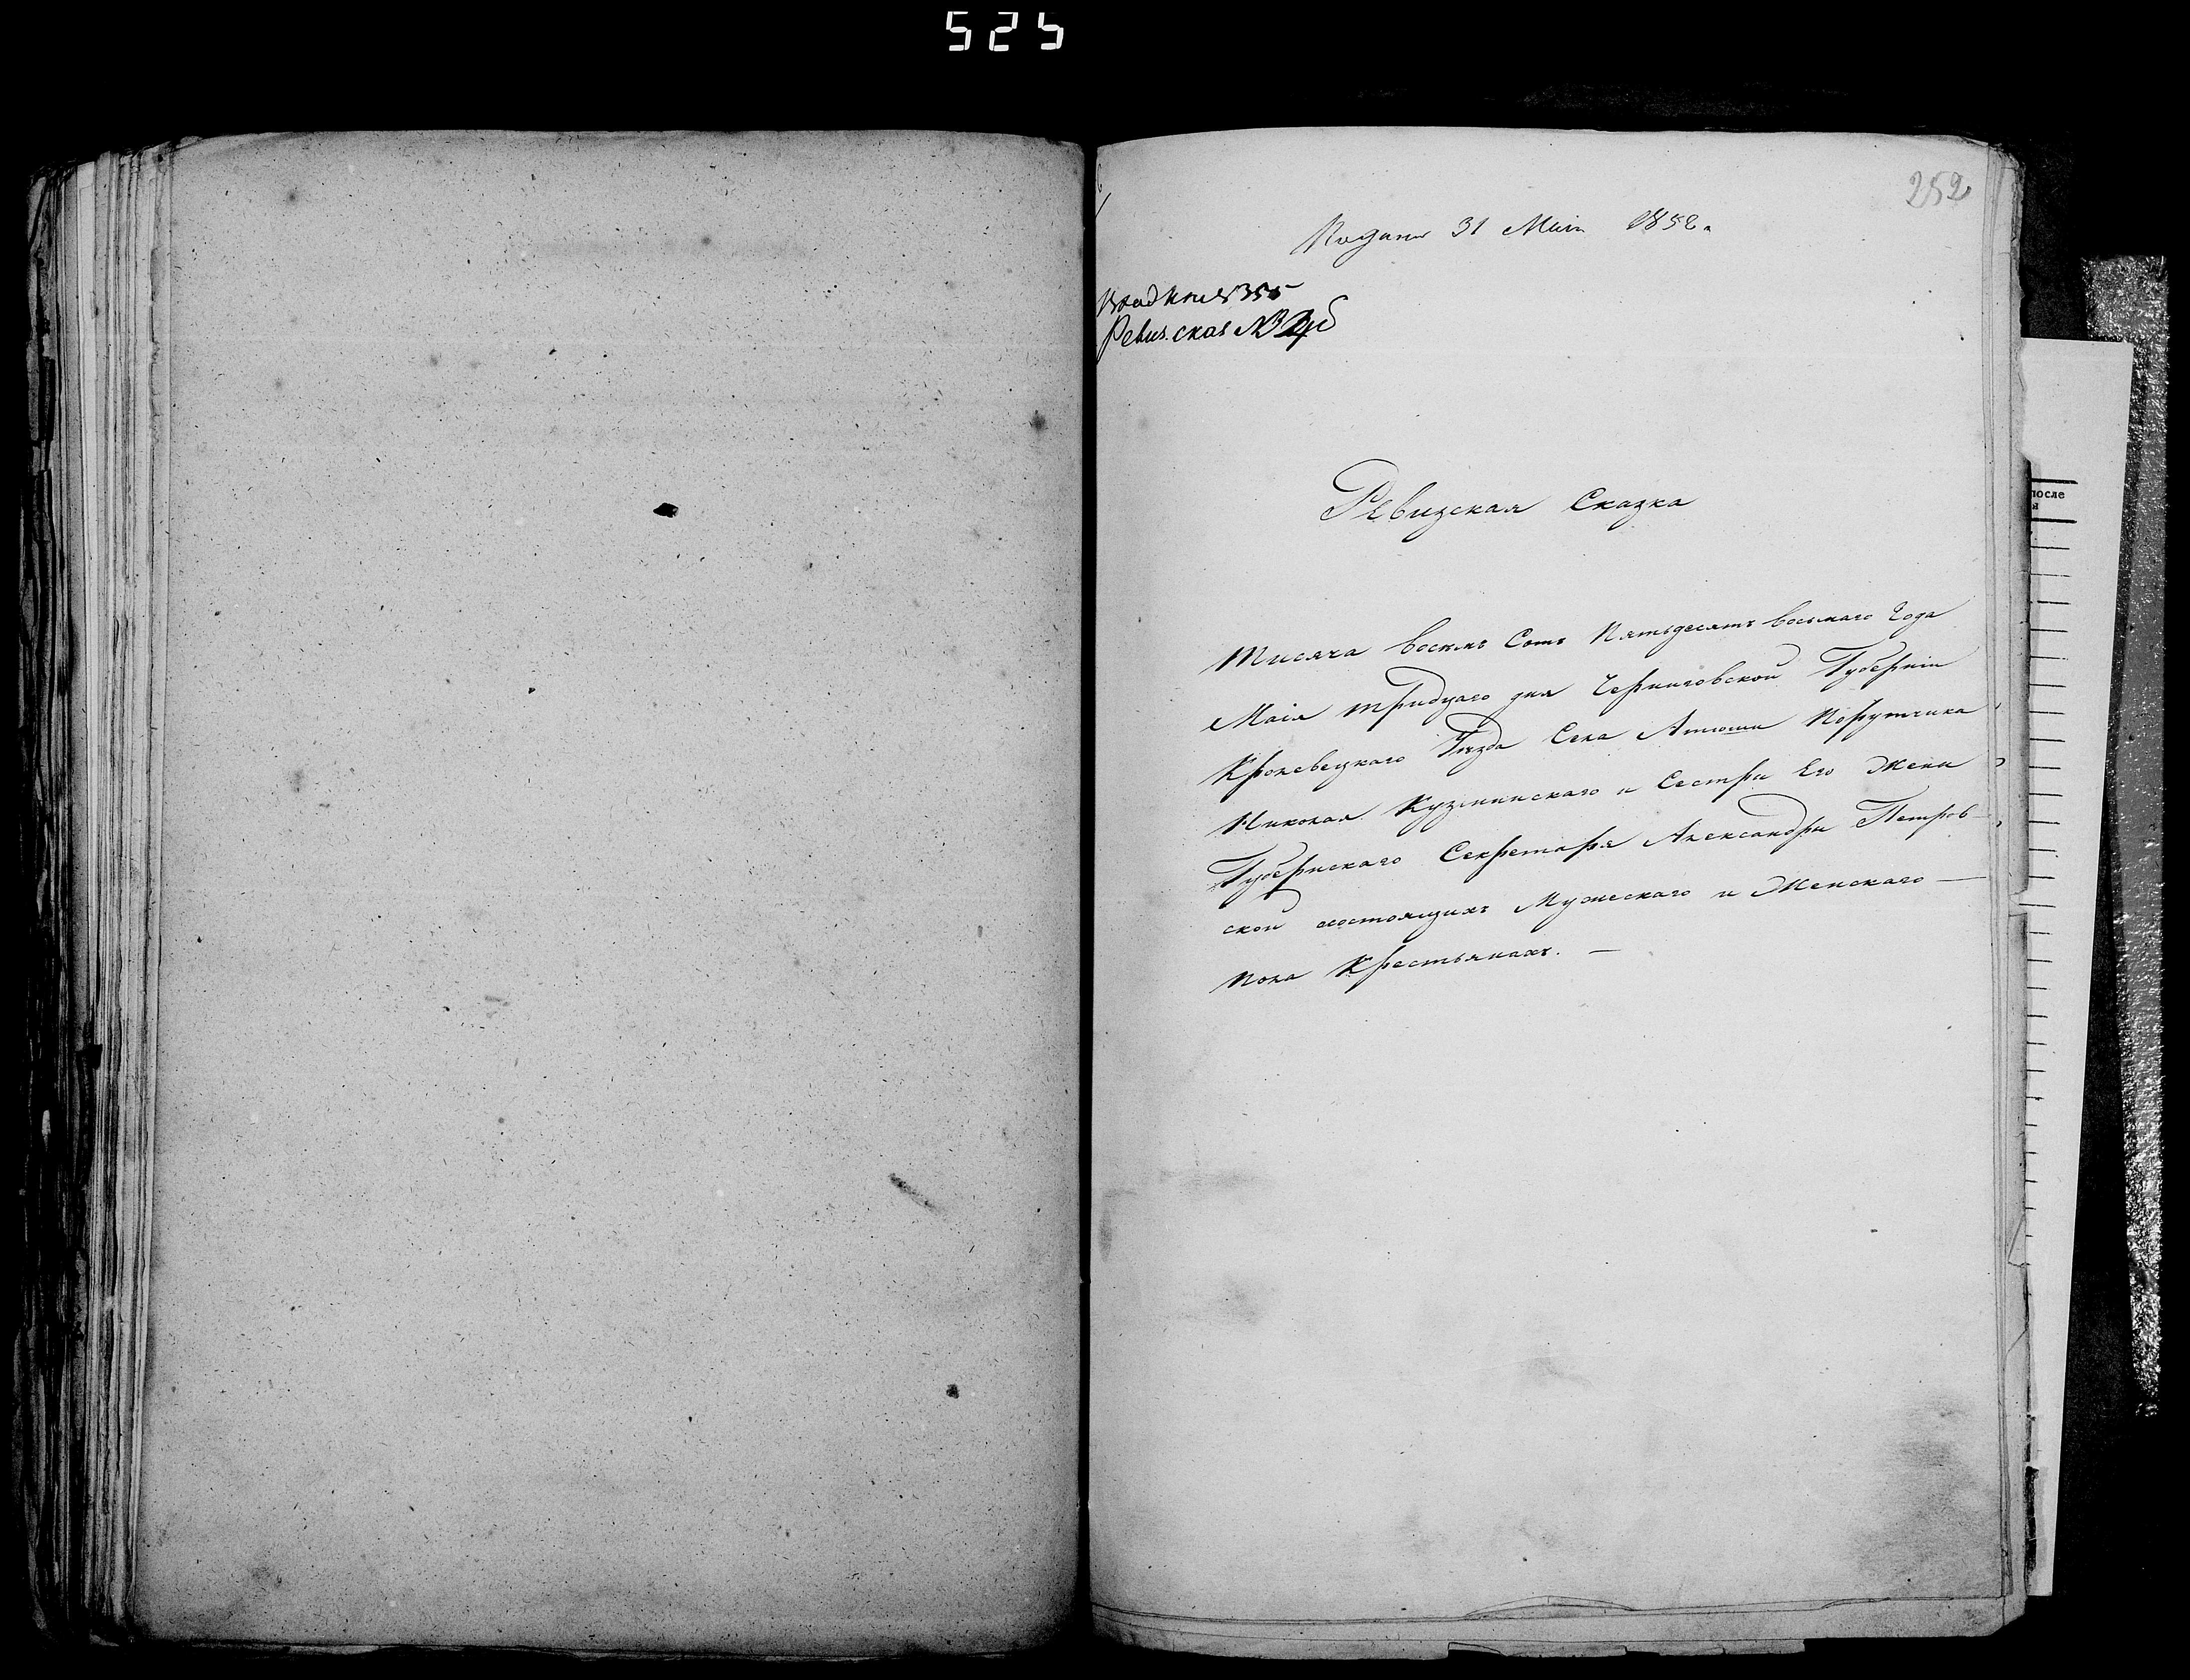 525
252
Подана 31 Маія 1858.
Вход № 355
Ревиз. сказ №
Ревизская Сказка
Тисяча восемъ Сотъ Пятьдесятъ восьмаго Года
Маія тридцаго дня Черниговской Губерніи
Кролевецкаго Уезда Села Атюши Порутчика
Николая Кузминскаго и Сестри Его Жени
Губернскаго Секретаря Александри Петров-
ской состоящихъ Мужескаго и Женскаго —
пола Крестьянахъ. —
после
я